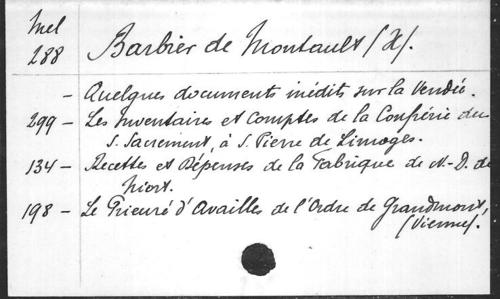 Mel
288 Barbier de Montault (X).
- Quelques documents inédits sur la Vendée.
299 - Les Inventaires et Comptes de la Confrérie du
S. Sacrement, à S. Pierre de Limoges.
134 - Recettes et Dépenses de la Fabrique de N.-D. de
Niort.
198 - Le Prieuré d'Availles de l'Ordre de Grandmont,
(Vienne).